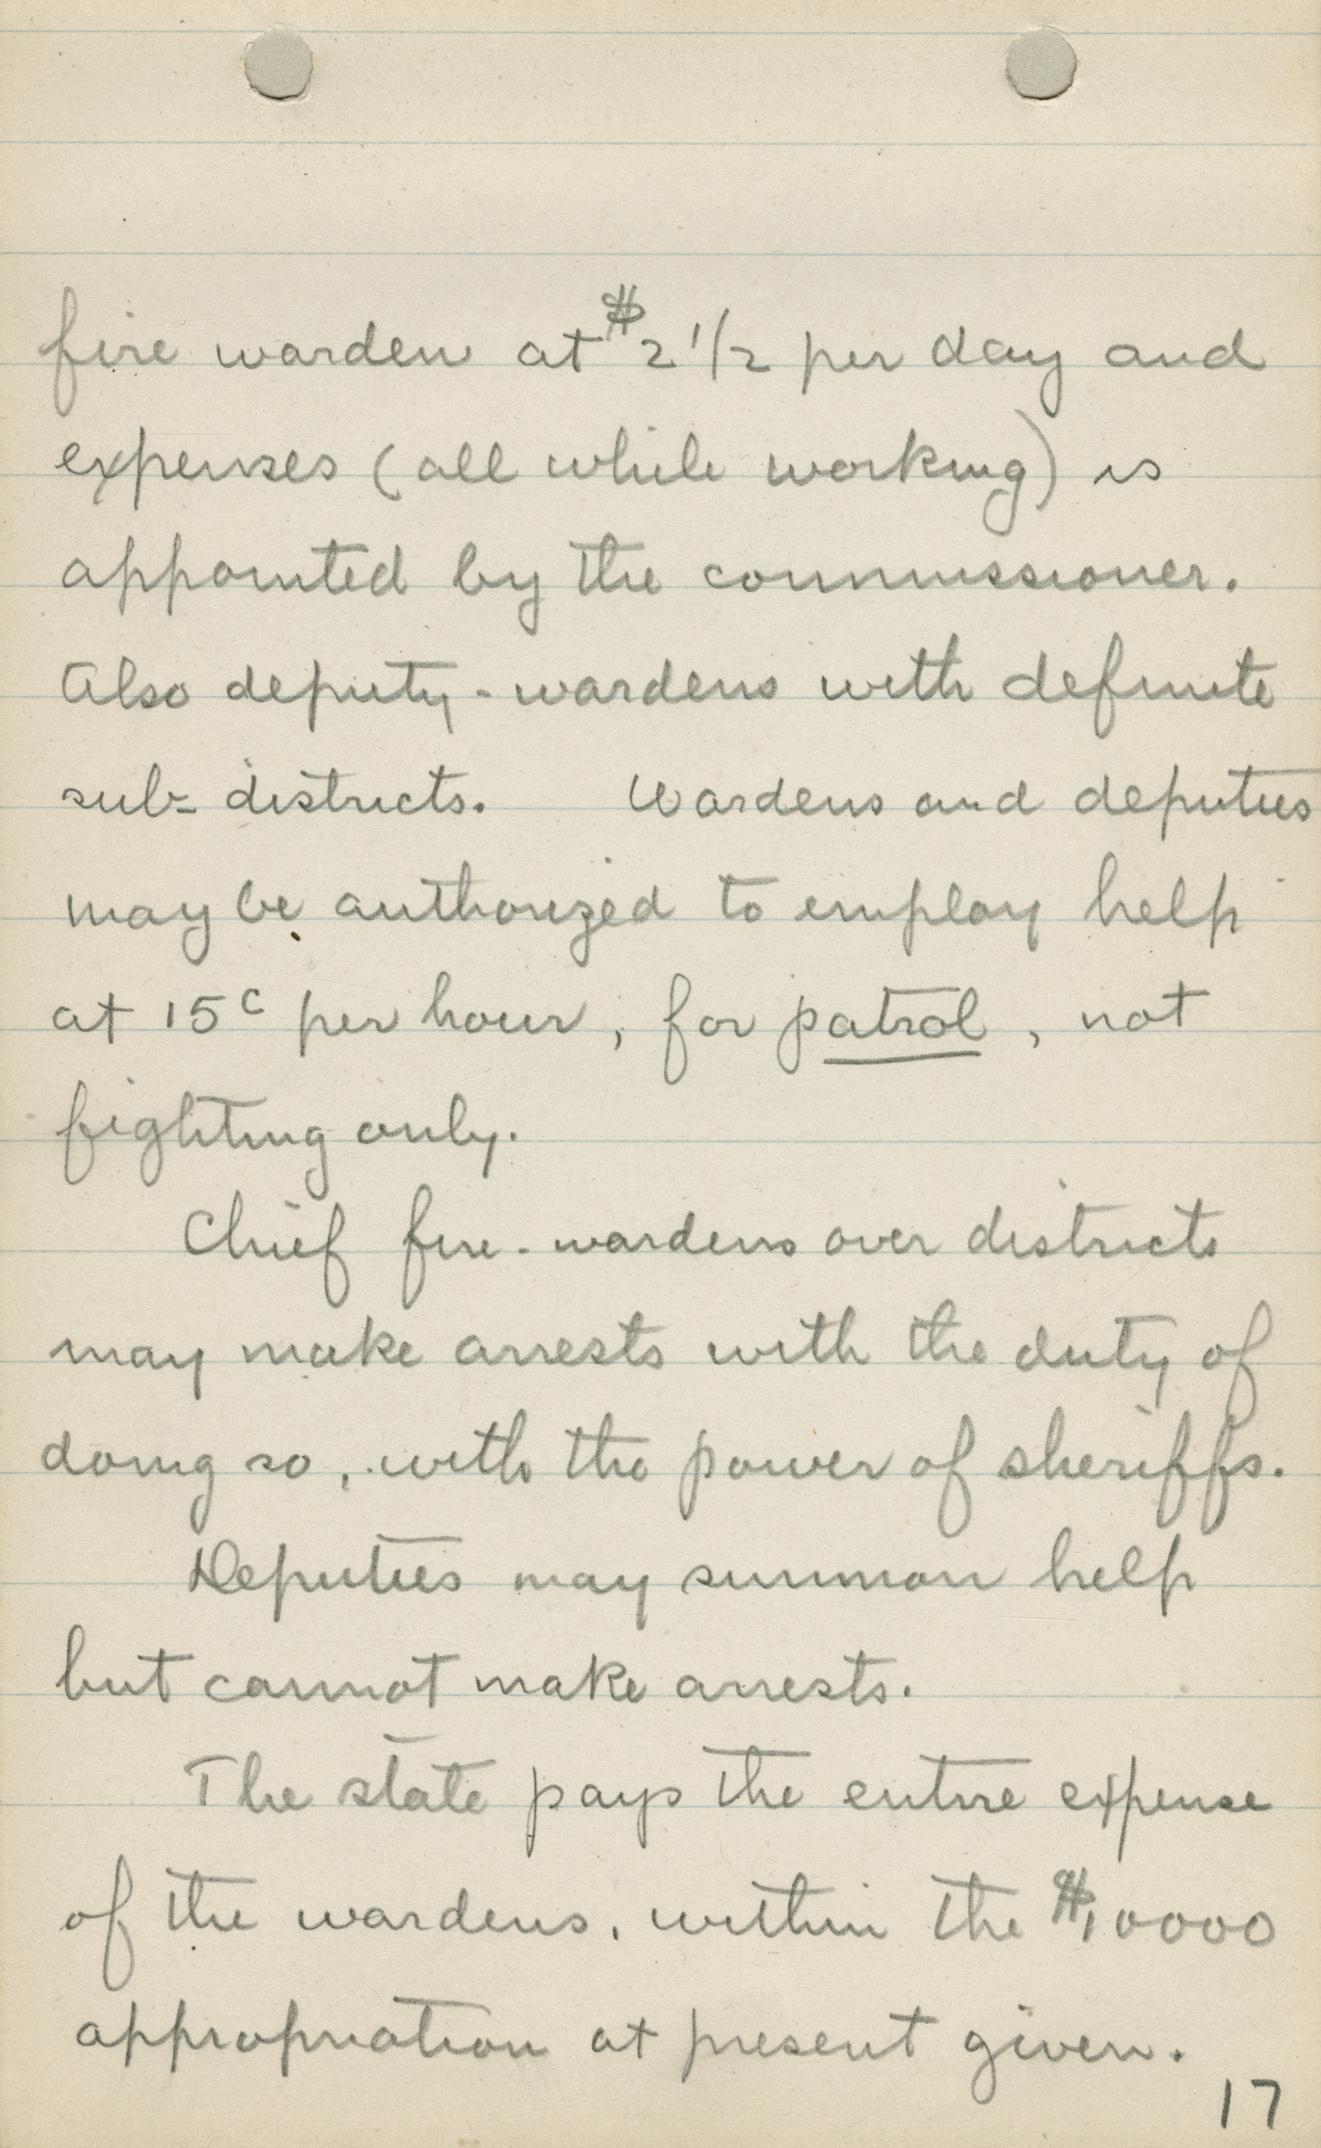 fire warden at $2 1/2 per day and
expenses (all while working) is
appointed by the commissioner.
Also deputy-wardens with definite
sub-districts. Wardens and deputies
may be authorized to employ help
at 15c per hour, for patrol, not
fighting only.
Chief fire-wardens over districts
may make arrests with the duty of
doing so, with the power of sheriffs.
Deputies may summon help
but cannot make arrests.
The state pays the entire expense
of the wardens, within the $10000
appropriation at present given.
17